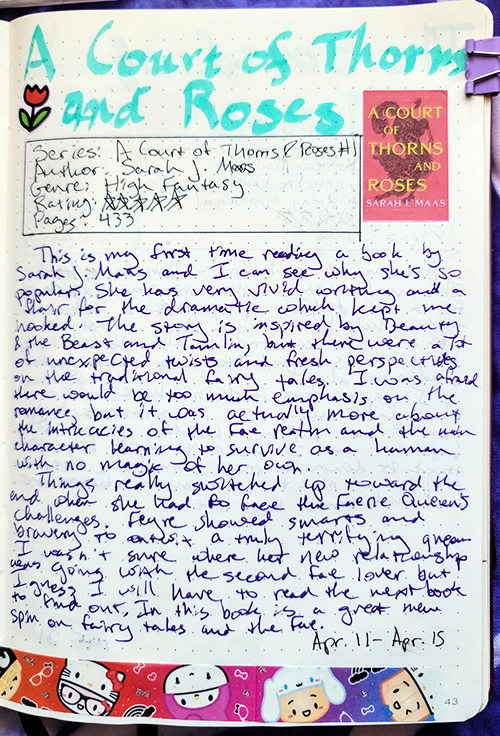 A Court of Thorns
and Roses
Series: A Court of Thorns & Roses #1
Author: Sarah J. Maas
Genre: High Fantasy
Rating: ☆☆☆☆☆
Pages: 433
A COURT
OF
THORNS
AND
ROSES
SARAH J. MAAS
This is my first time reading a book by
Sarah J. Maas and I can see why she's so
popular. She has very vivid writing and a
flair for the dramatic which kept me
hooked. The story is inspired by Beauty
& the Beast and Tamlin, but there were a lot
of unexpected twists and fresh perspectives
on the traditional fairy tales. I was afraid
there would be too much emphasis on the
romance, but it was actually more about
the intricacies of the Fae realm and the main
character learning to survive as a human
with no magic of her own.
Things really switched up toward the
end when she had to face the Faerie Queen's
challenges. Feyre showed smarts and
bravery to outwit a truly terrifying queen.
I wasn't sure where her new relationship
was going with the second fae lover but
I guess I will have to read the next book
to find out. In this book is a great new
spin on fairy tales and the fae.
Apr. 11 - Apr. 15
43